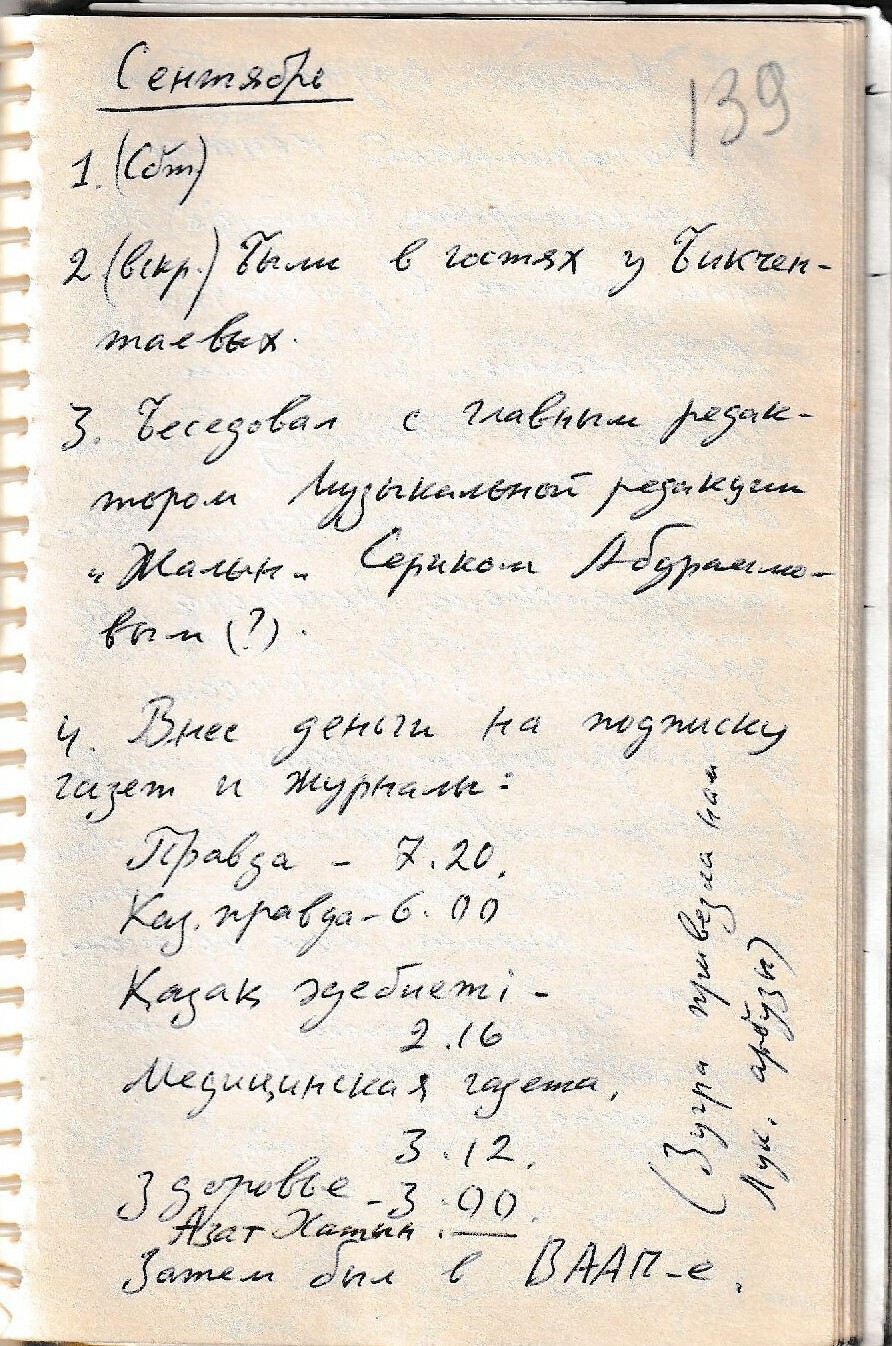 Сентябрь
139
1. (Сбт)
2 (вскр.) Были в гостях у Бикчен-
таевых.
3. Беседовал с главным редак-
тором Музыкальной редакции
"Жалын" Сериком Абдраимо-
вым (?).
4. Внес деньги на подписку
газет и журналы:
Правда - 7.20.
Каз. правда - 6.00
Қазақ әдебиеті -
2.16
Медицинская газета.
3.12.
Здоровье - 3.00.
Азат Хатын.
Затем был в ВААП-е.
(Зугра привезла нам
лук, арбузы)